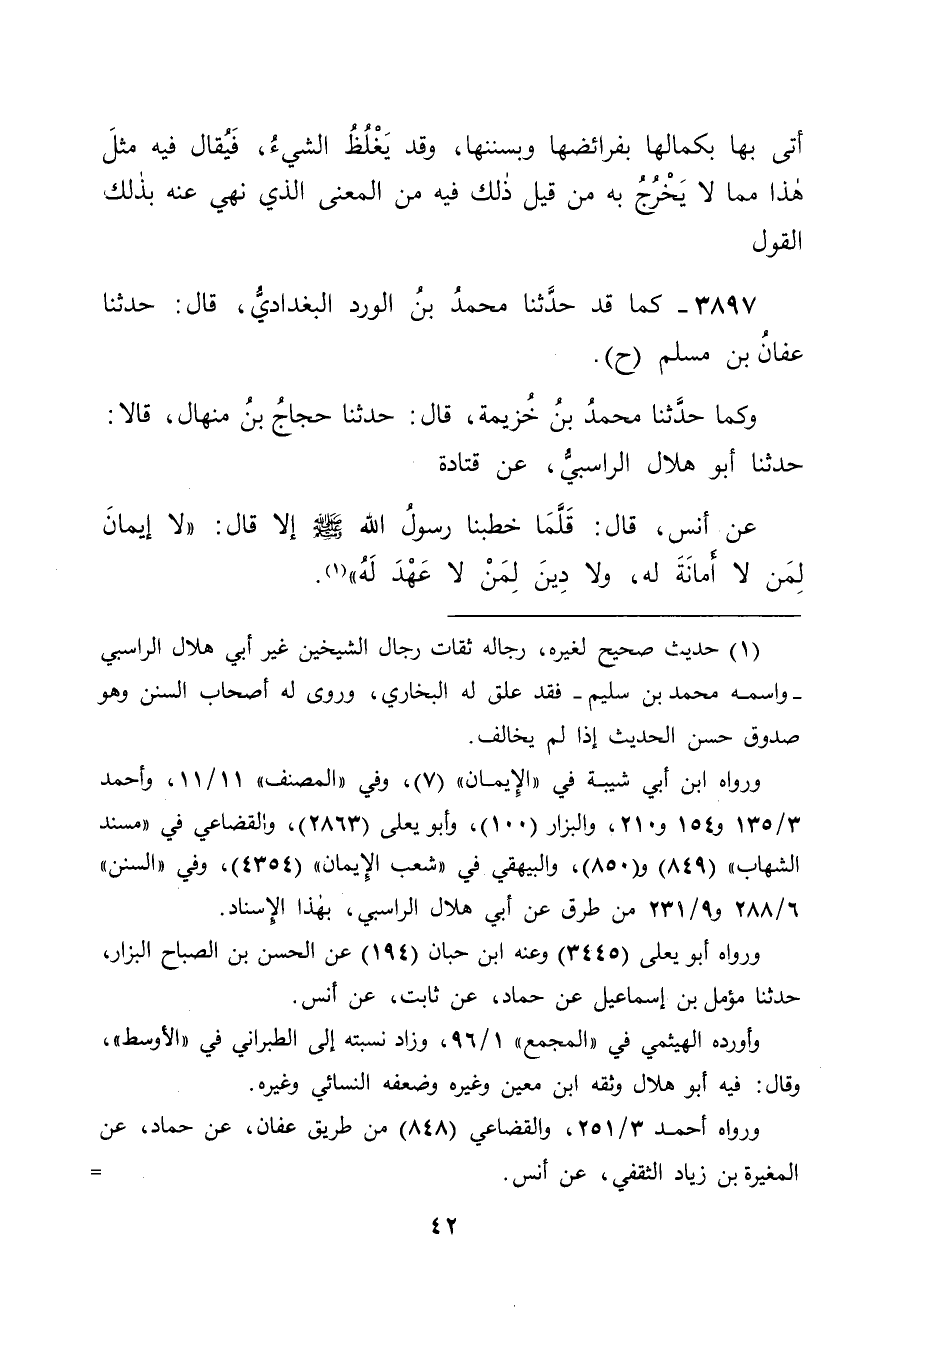 أتى بها بكمالها بفرائضها وبسننها، وقد يَغْلُظُ الشيءُ، فَيُقال فيه مثلَ
هٰذا مما لا يَخْرُجُ به من قيل ذٰلك فيه من المعنى الذي نهي عنه بذٰلك
القول
٣٨٩٧ ـ كما قد حدَّثنا محمدُ بنُ الورد البغداديُّ، قال: حدثنا
عفانُ بن مسلم (ح).
وكما حدَّثنا محمدُ بنُ خُزيمة، قال: حدثنا حجاجُ بنُ منهال، قالا:
حدثنا أبو هلال الراسبيُّ، عن قتادة
عن أنس، قال: قَلَّمَا خطبنا رسولُ الله ﷺ إلا قال: «لا إيمانَ
لِمَن لا أَمانَةَ له، ولا دِينَ لِمَنْ لا عَهْدَ لَهُ»(١).
(١) حديث صحيح لغيره، رجاله ثقات رجال الشيخين غير أبي هلال الراسبي
ـ واسمه محمد بن سليم ـ فقد علق له البخاري، وروى له أصحاب السنن وهو
صدوق حسن الحديث إذا لم يخالف.
ورواه ابن أبي شيبة في «الإيمان» (٧)، وفي «المصنف» ١١/١١، وأحمد
١٣٥/٣ و١٥٤ و٢١٠، والبزار (١٠٠)، وأبو يعلى (٢٨٦٣)، والقضاعي في «مسند
الشهاب» (٨٤٩) و(٨٥٠)، والبيهقي في «شعب الإيمان» (٤٣٥٤)، وفي «السنن»
٢٨٨/٦ و٢٣١/٩ من طرق عن أبي هلال الراسبي، بهٰذا الإسناد.
ورواه أبو يعلى (٣٤٤٥) وعنه ابن حبان (١٩٤) عن الحسن بن الصباح البزار،
حدثنا مؤمل بن إسماعيل عن حماد، عن ثابت، عن أنس.
وأورده الهيثمي في «المجمع» ٩٦/١، وزاد نسبته إلى الطبراني في «الأوسط»،
وقال: فيه أبو هلال وثقه ابن معين وغيره وضعفه النسائي وغيره.
ورواه أحمد ٢٥١/٣، والقضاعي (٨٤٨) من طريق عفان، عن حماد، عن
المغيرة بن زياد الثقفي، عن أنس. =
٤٢